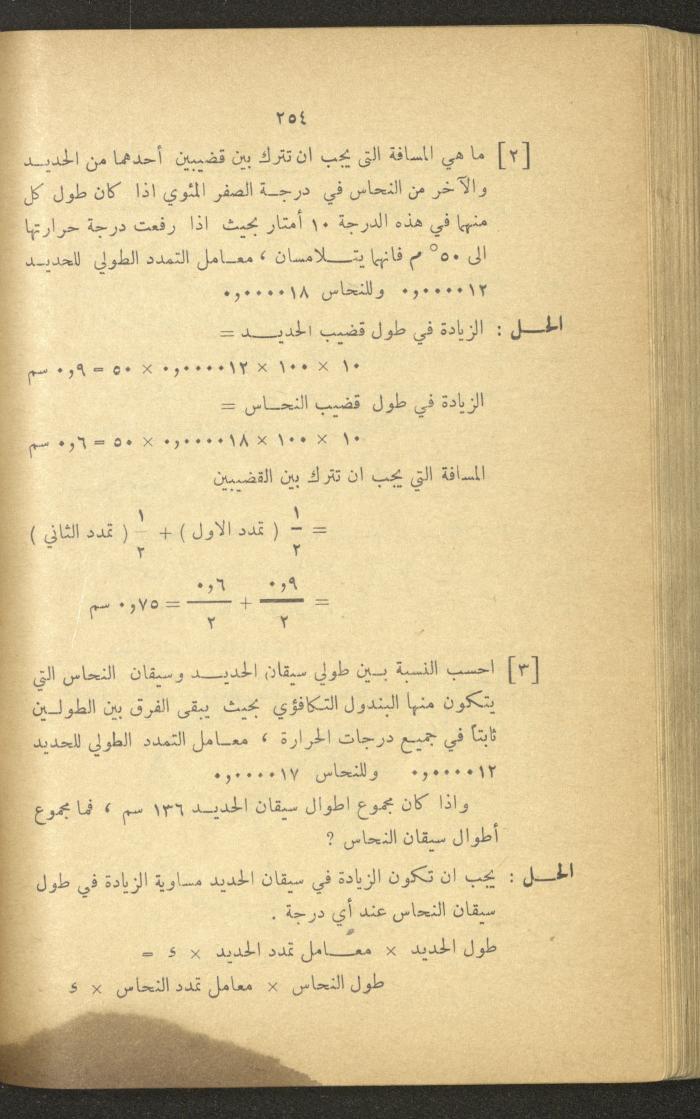 ٢٥٤
[٢] ما هي المسافة التي يجب ان تترك بين قضيبين أحدهما من الحديد
والآخر من النحاس في درجة الصفر المئوي اذا كان طول كل
منهما في هذه الدرجة ١٠ أمتار بحيث اذا رفعت درجة حرارتها
الى ٥٠° م فانهما يتلامسان ، معامل التمدد الطولي للحديد
٠,٠٠٠٠١٢ وللنحاس ٠,٠٠٠٠١٨
الحل : الزيادة في طول قضيب الحديد =
١٠ × ١٠٠ × ٠,٠٠٠٠١٢ × ٥٠ = ٠,٩ سم
الزيادة في طول قضيب النحاس =
١٠ × ١٠٠ × ٠,٠٠٠٠١٨ × ٥٠ = ٠,٦ سم
المسافة التي يجب ان تترك بين القضيبين
= ١/٢ ( تمدد الاول ) + ١/٢ ( تمدد الثاني )
= ٠,٩/٢ + ٠,٦/٢ = ٠,٧٥ سم
[٣] احسب النسبة بين طولي سيقان الحديد وسيقان النحاس التي
يتكون منها البندول التكافؤي بحيث يبقى الفرق بين الطولين
ثابتاً في جميع درجات الحرارة ، معامل التمدد الطولي للحديد
٠,٠٠٠٠١٢ وللنحاس ٠,٠٠٠٠١٧
واذا كان مجموع اطوال سيقان الحديد ١٣٦ سم ، فما مجموع
أطوال سيقان النحاس ؟
الحل : يجب ان تكون الزيادة في سيقان الحديد مساوية الزيادة في طول
سيقان النحاس عند أي درجة .
طول الحديد × معامل تمدد الحديد × د =
طول النحاس × معامل تمدد النحاس × د